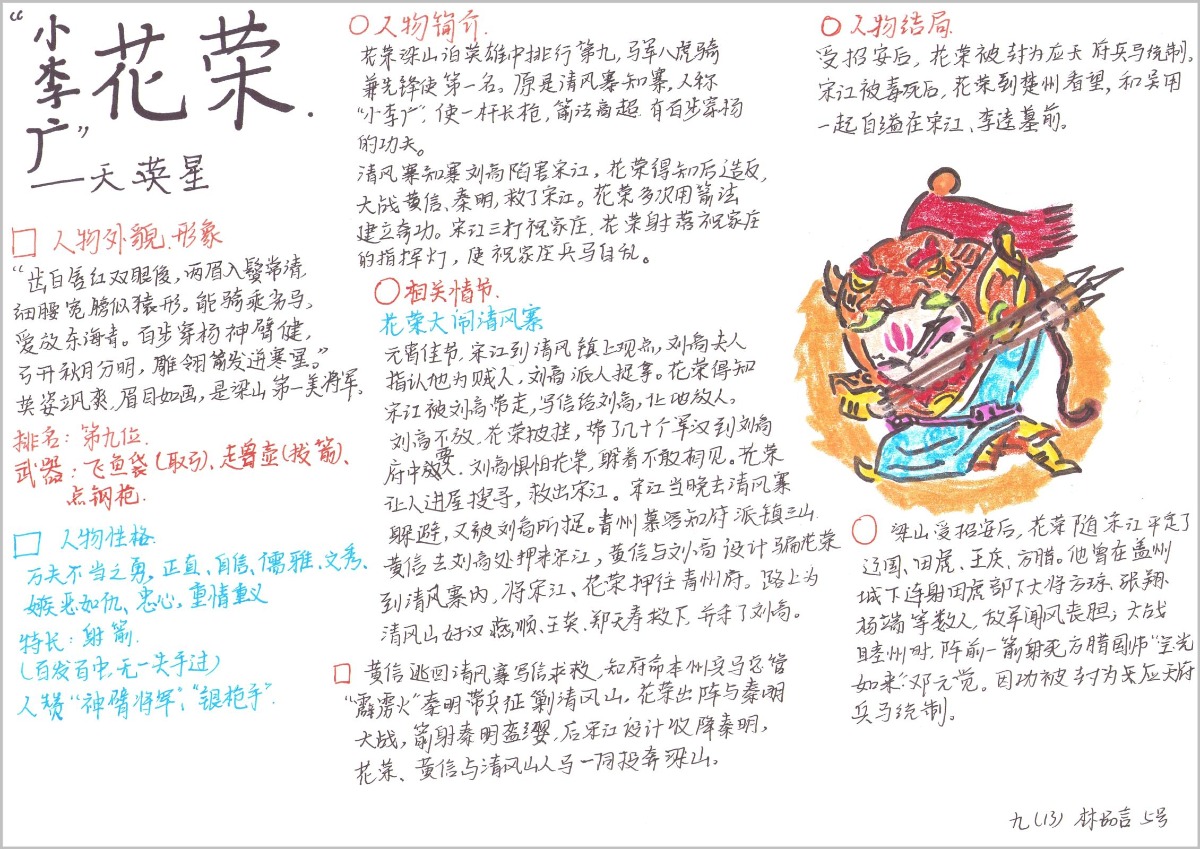 “小李广”
花荣.
——天英星
□ 人物外貌.形象
“齿白唇红双眼俊，两眉入鬓常清
细腰宽膀似猿形。能骑乘劣马，
爱放东海青。百步穿杨神臂健，
弓开秋月分明，雕翎箭发迸寒星。”
英姿飒爽，眉目如画，是梁山第一美将军。
排名：第九位.
武器：飞鱼袋(取弓)、走兽壶(拔箭)、
点钢枪.
□ 人物性格.
万夫不当之勇，正直、自信、儒雅、文秀、
嫉恶如仇、忠心，重情重义
特长：射箭.
(百发百中，无一失手过)
人赞“神臂将军”，“银枪手”.
○人物简介.
花荣梁山泊英雄中排行第九，马军八虎骑
兼先锋使第一名。原是清风寨知寨，人称
“小李广”，使一杆长枪，箭法高超.有百步穿杨
的功夫。
清风寨知寨刘高陷害宋江，花荣得知后造反，
大战黄信、秦明，救了宋江。花荣多次用箭法
建立奇功。宋江三打祝家庄，花荣射落祝家庄
的指挥灯，使祝家庄兵马自乱。
○相关情节.
花荣大闹清风寨
元宵佳节，宋江到清风镇上观点，刘高夫人
指认他为贼人，刘高派人捉拿。花荣得知
宋江被刘高带走，写信给刘高，让他放人。
刘高不放，花荣披挂，带了几十个军汉到刘高
府中要人.刘高惧怕花荣，躲着不敢相见。花荣
让人进屋搜寻，救出宋江。宋江当晚去清风寨
躲避，又被刘高所捉。青州慕容知府派镇三山
黄信去刘高处押来宋江，黄信与刘高设计骗花荣
到清风寨内，将宋江、花荣押往青州府。路上为
清风山好汉燕顺、王英、郑天寿救下，并杀了刘高。
□ 黄信逃回清风寨写信求救，知府命本州兵马总管
“霹雳火”秦明带兵征剿清风山，花荣出阵与秦明
大战，箭射秦明盔缨，后宋江设计收降秦明，
花荣、黄信与清风山人马一同投奔梁山。
○ 人物结局.
受招安后，花荣被封为应天府兵马统制。
宋江被毒死后，花荣到楚州看望，和吴用
一起自缢在宋江、李逵墓前。
○ 梁山受招安后，花荣随宋江平定了
辽国、田虎、王庆、方腊。他曾在盖州
城下连射田虎部下大将方琼、张翔、
杨端等数人，敌军闻风丧胆；大战
睦州时，阵前一箭射死方腊国师“宝光
如来”邓元觉。因功被封为兵应天府
兵马统制。
九(13) 林品言 5号